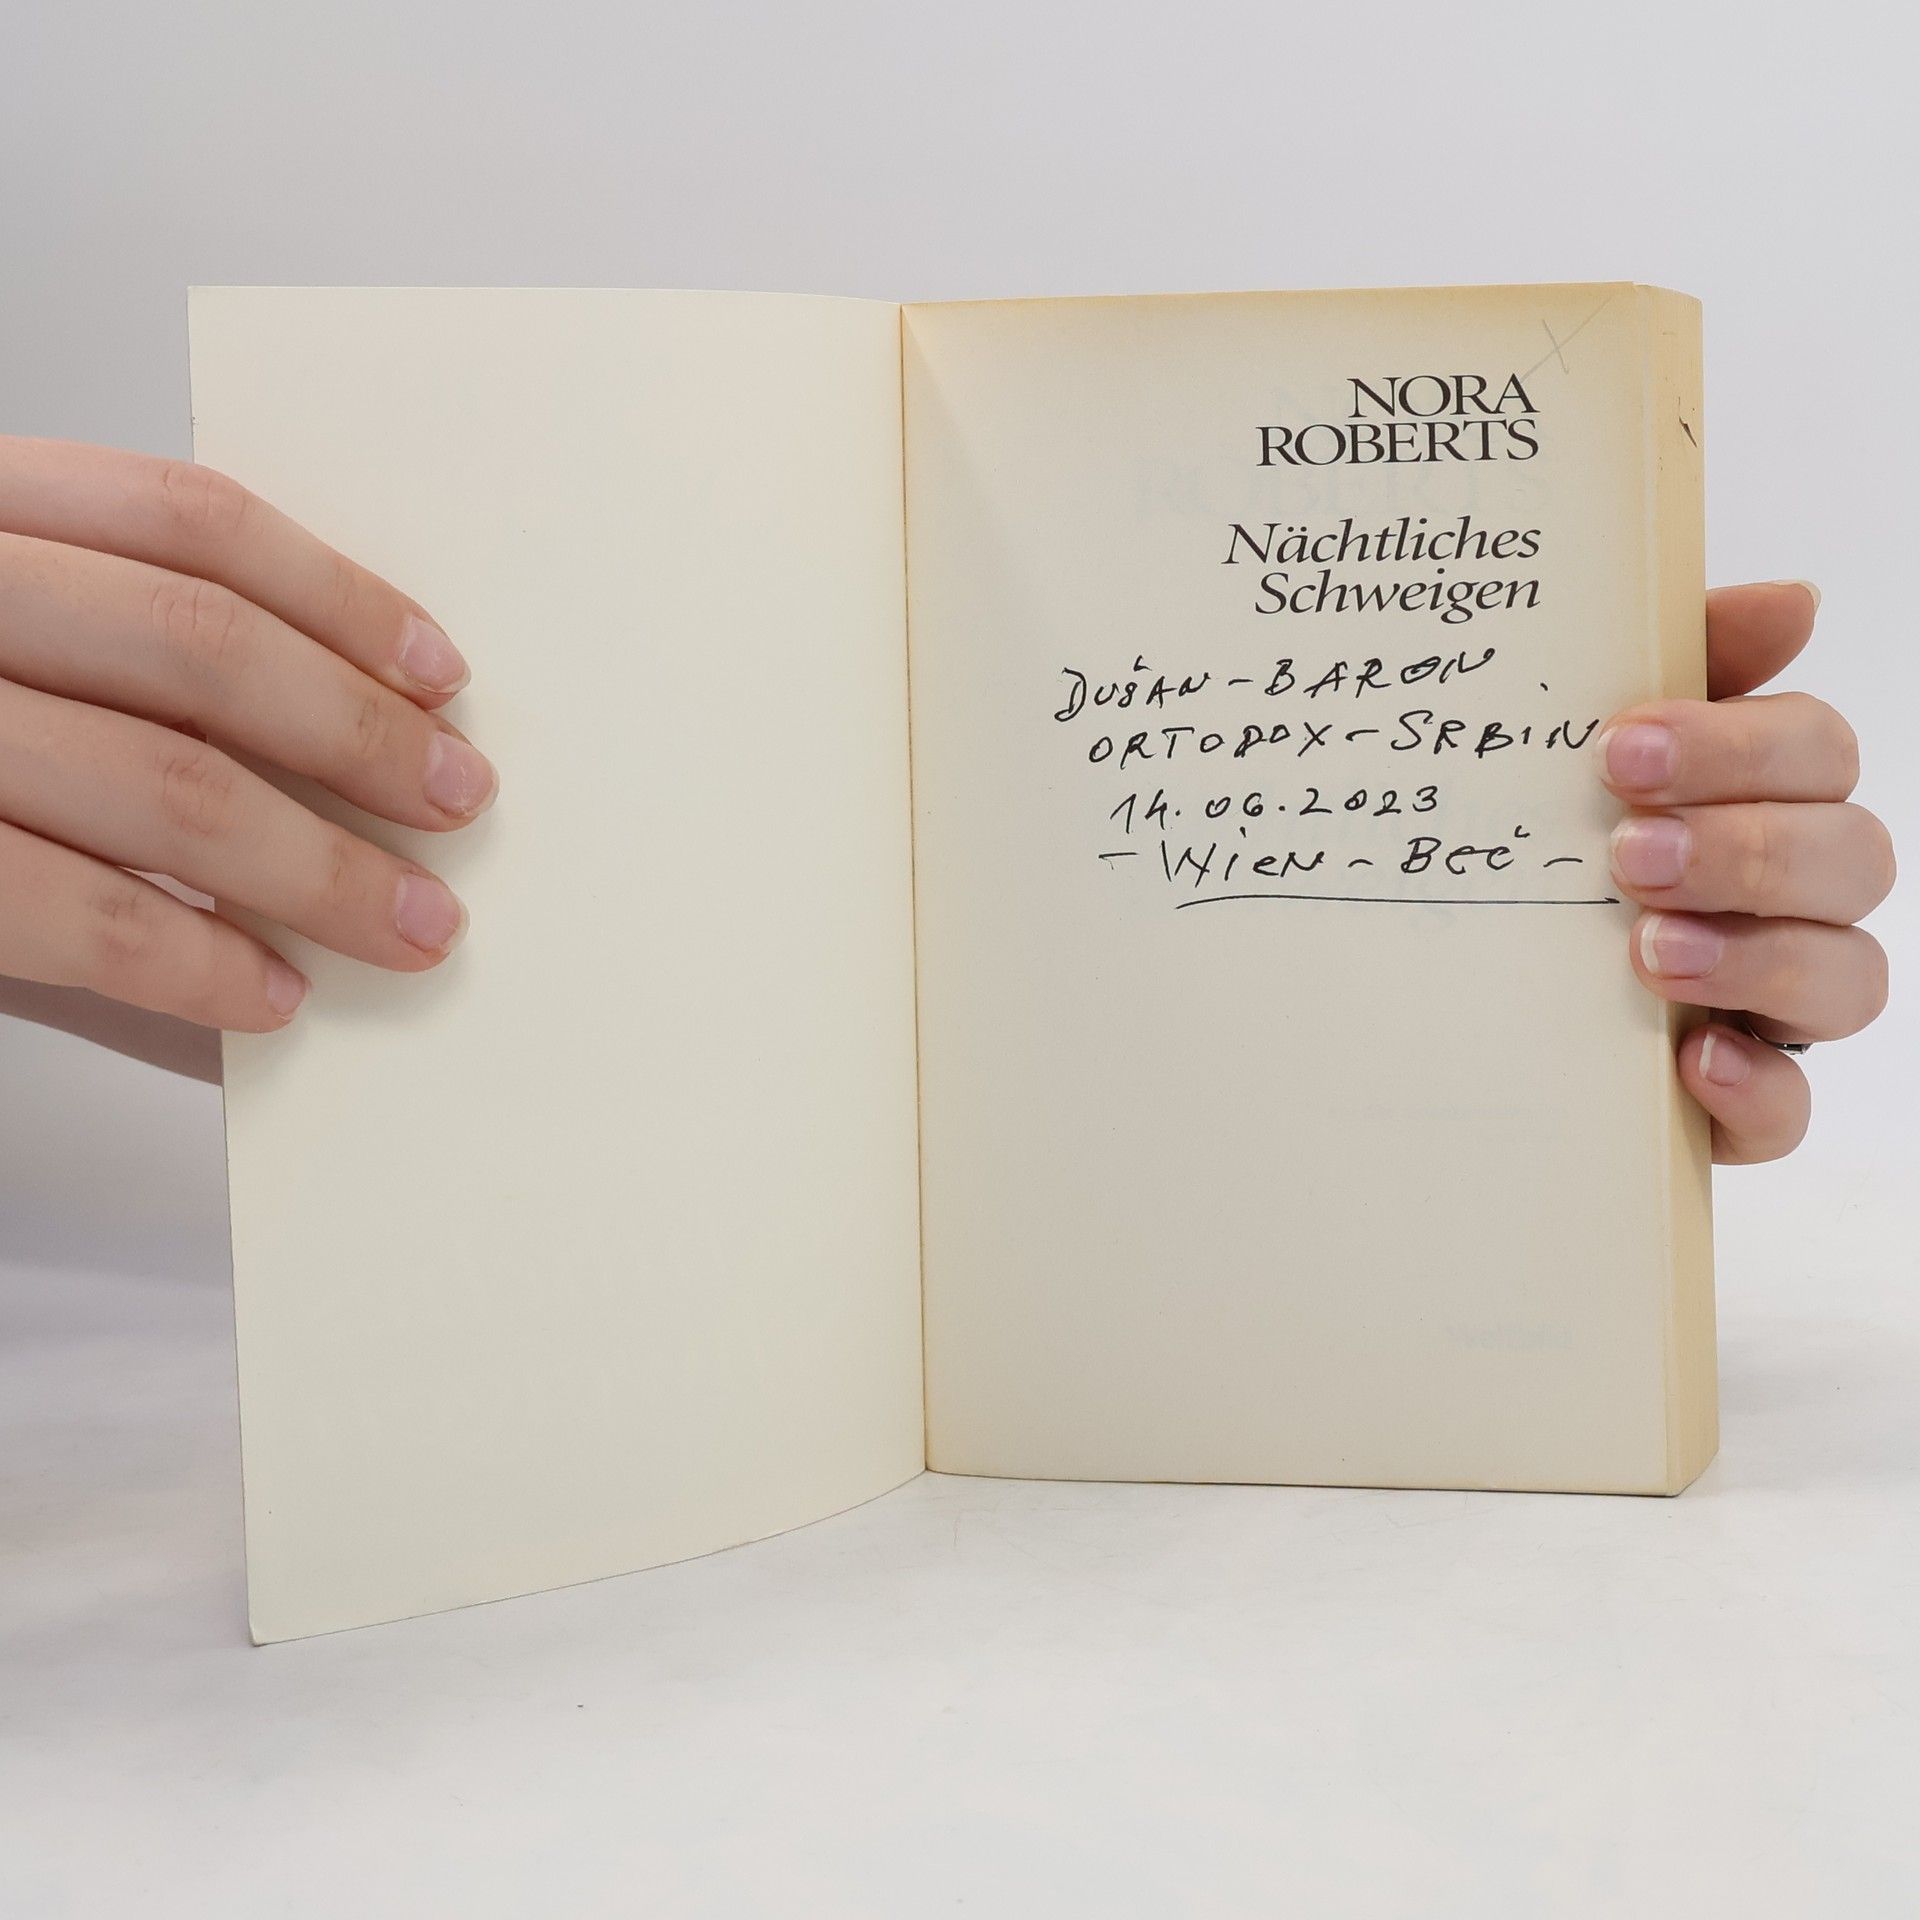 NORA
ROBERTS
Nächtliches
Schweigen
DUŠAN - BARON
ORTODOX - SRBIN
14.06.2023
- WIEN - BEČ -